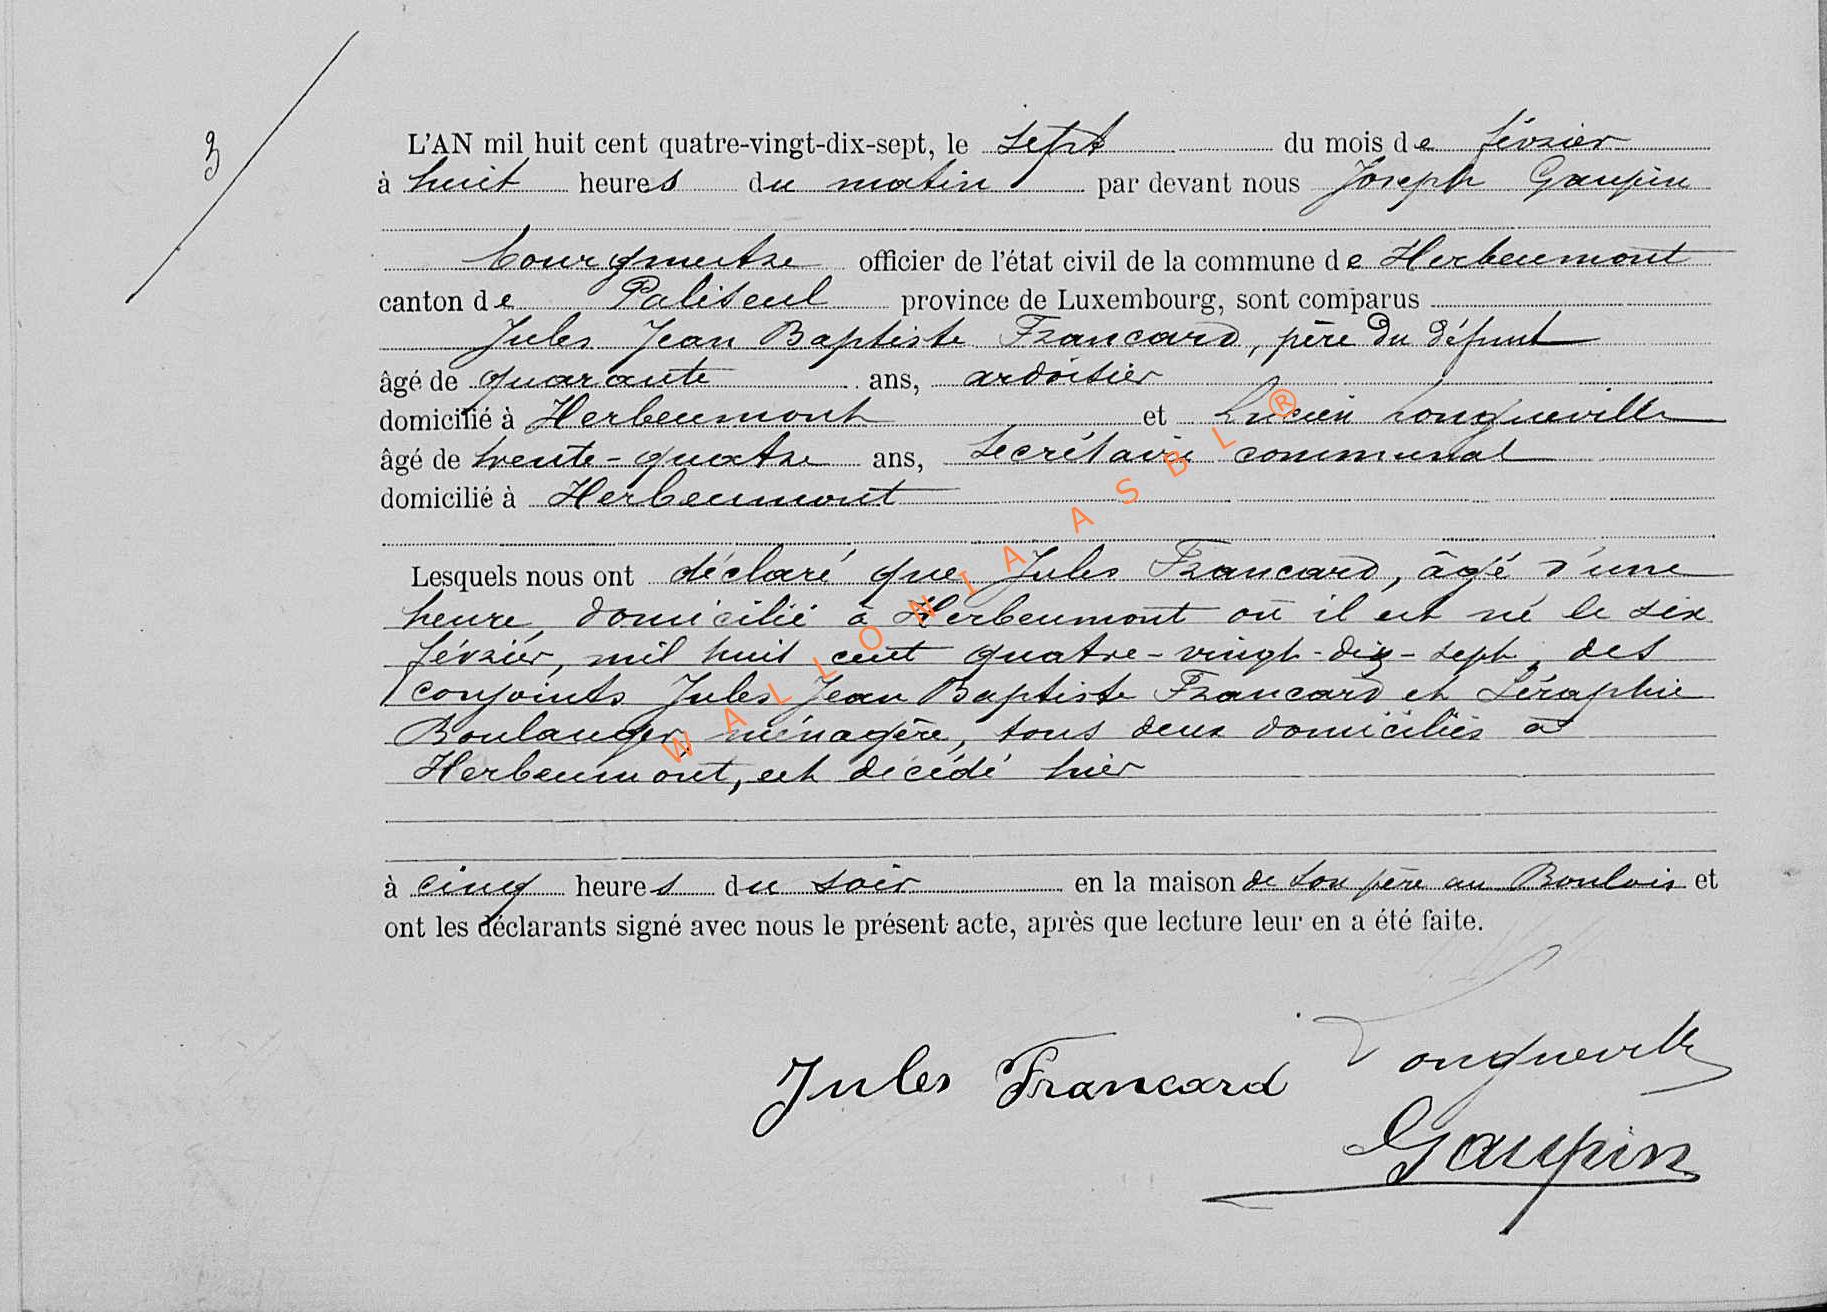 3
L'AN mil huit cent quatre-vingt-dix-sept, le sept du mois de février
à huit heures du matin par devant nous Joseph Gaupin
bourgmestre officier de l'état civil de la commune de Herbeumont
canton de Paliseul province de Luxembourg, sont comparus
Jules Jean Baptiste Francard, père du défunt
âgé de quarante ans, ardoisier
domicilié à Herbeumont et Lucien Longueville
âgé de trente-quatre ans, secrétaire communal
domicilié à Herbeumont
Lesquels nous ont déclaré que Jules Francard, âgé d'une
heure, domicilié à Herbeumont où il est né le six
février, mil huit cent quatre-vingt-dix-sept, des
conjoints Jules Jean Baptiste Francard et Séraphie
Boulanger, ménagère, tous deux domiciliés à
Herbeumont, est décédé hier
à cinq heures du soir en la maison de son père au Boulois et
ont les déclarants signé avec nous le présent acte, après que lecture leur en a été faite.
Jules Francard Longueville
Gaupin
WALLONIA ASBL ®